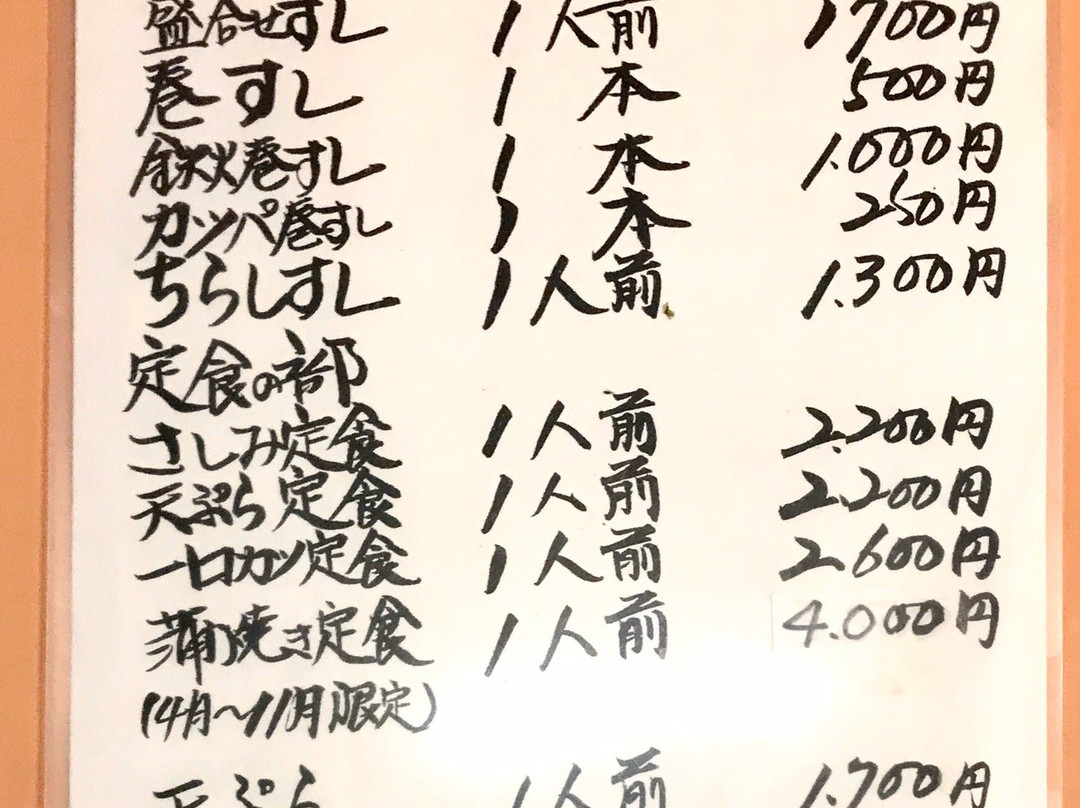 盛合せすし 1人前 1700円
巻すし 1本 500円
鉄火巻すし 1本 1.000円
カッパ巻すし 1本 250円
ちらしすし 1人前 1.300円
定食の部
さしみ定食 1人前 2.200円
天ぷら定食 1人前 2.200円
一口カツ定食 1人前 2.600円
蒲焼き定食 1人前 4.000円
(4月〜11月限定)
天ぷら 1人前 1.700円